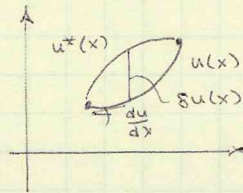 u*(x)
u(x)
δu(x)
du
dx